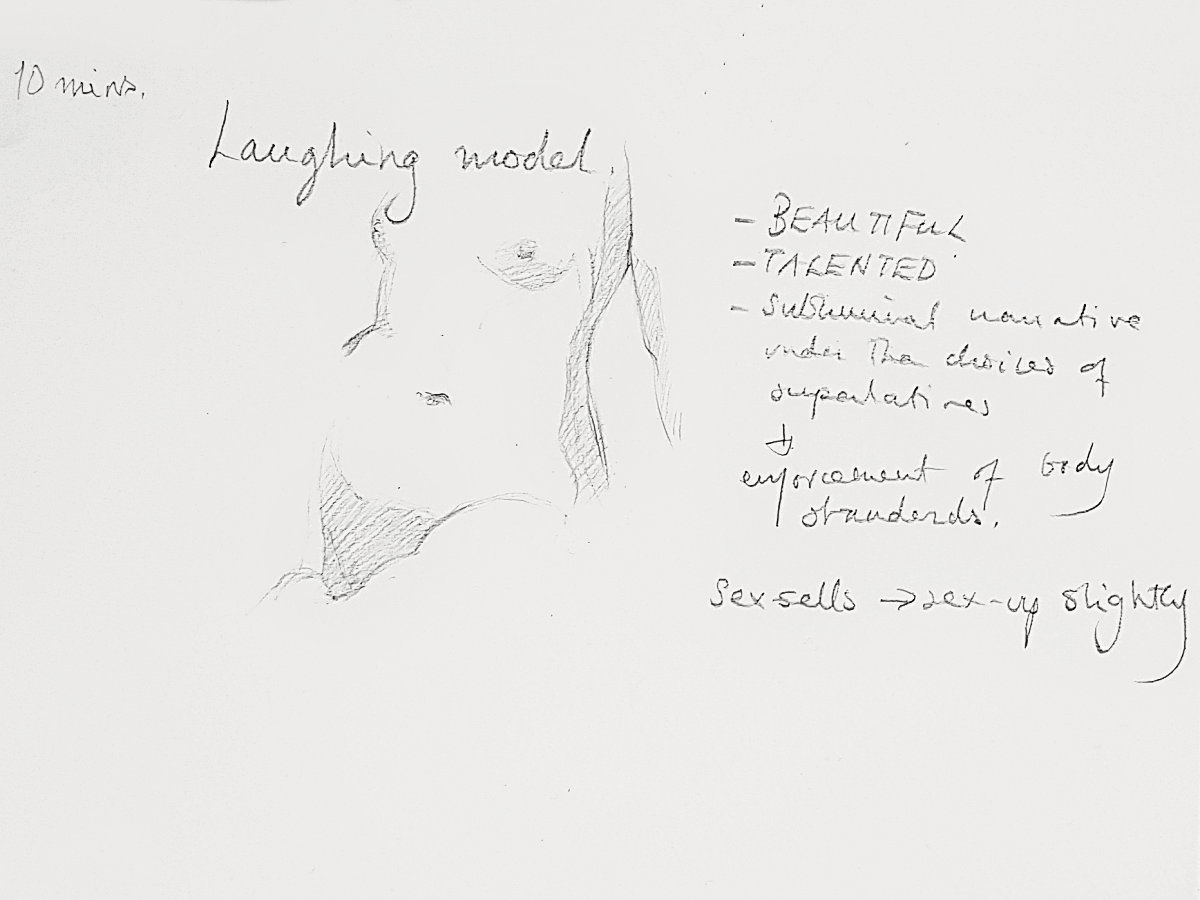 10 mins.
Laughing model.
- BEAUTIFUL
- TALENTED
- Subliminal narrative
under the choices of
superlatives
↓
enforcement of body
standards.
Sex sells → sex-up slightly